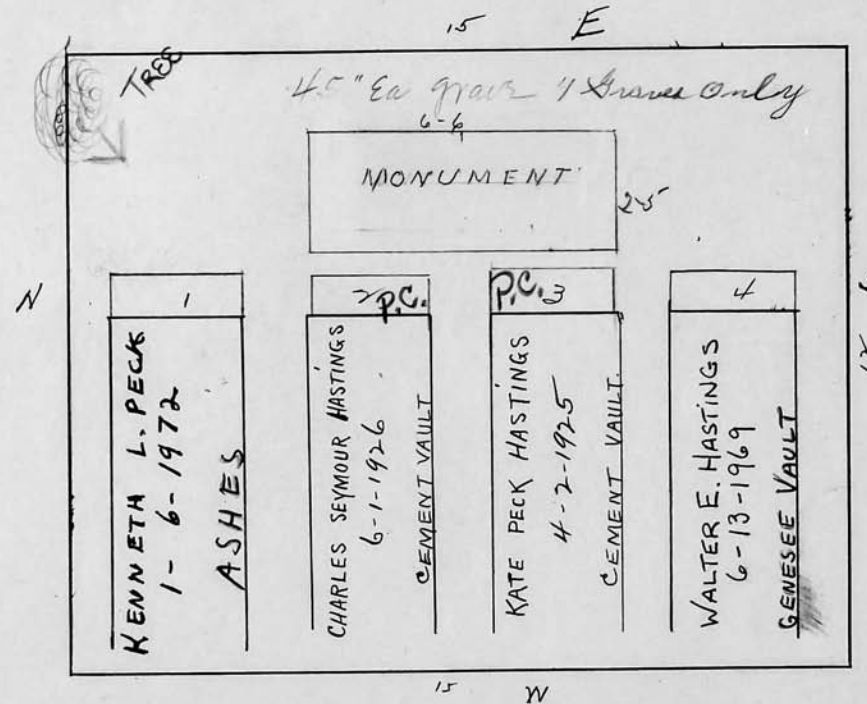 15 E
TREE
45" Ea grave 4 Graves Only
6-6
MONUMENT
2-5
N
1
2 P.C.
P.C. 3
4
KENNETH L. PECK
1-6-1972
ASHES
CHARLES SEYMOUR HASTINGS
6-1-1926
CEMENT VAULT
KATE PECK HASTINGS
4-2-1925
CEMENT VAULT.
WALTER E. HASTINGS
6-13-1969
GENESEE VAULT
15 W